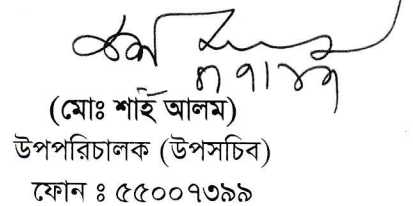 (মোঃ শাহ আলম)
উপপরিচালক (উপসচিব)
ফোন ঃ ৫৫০০৭৩৯৯